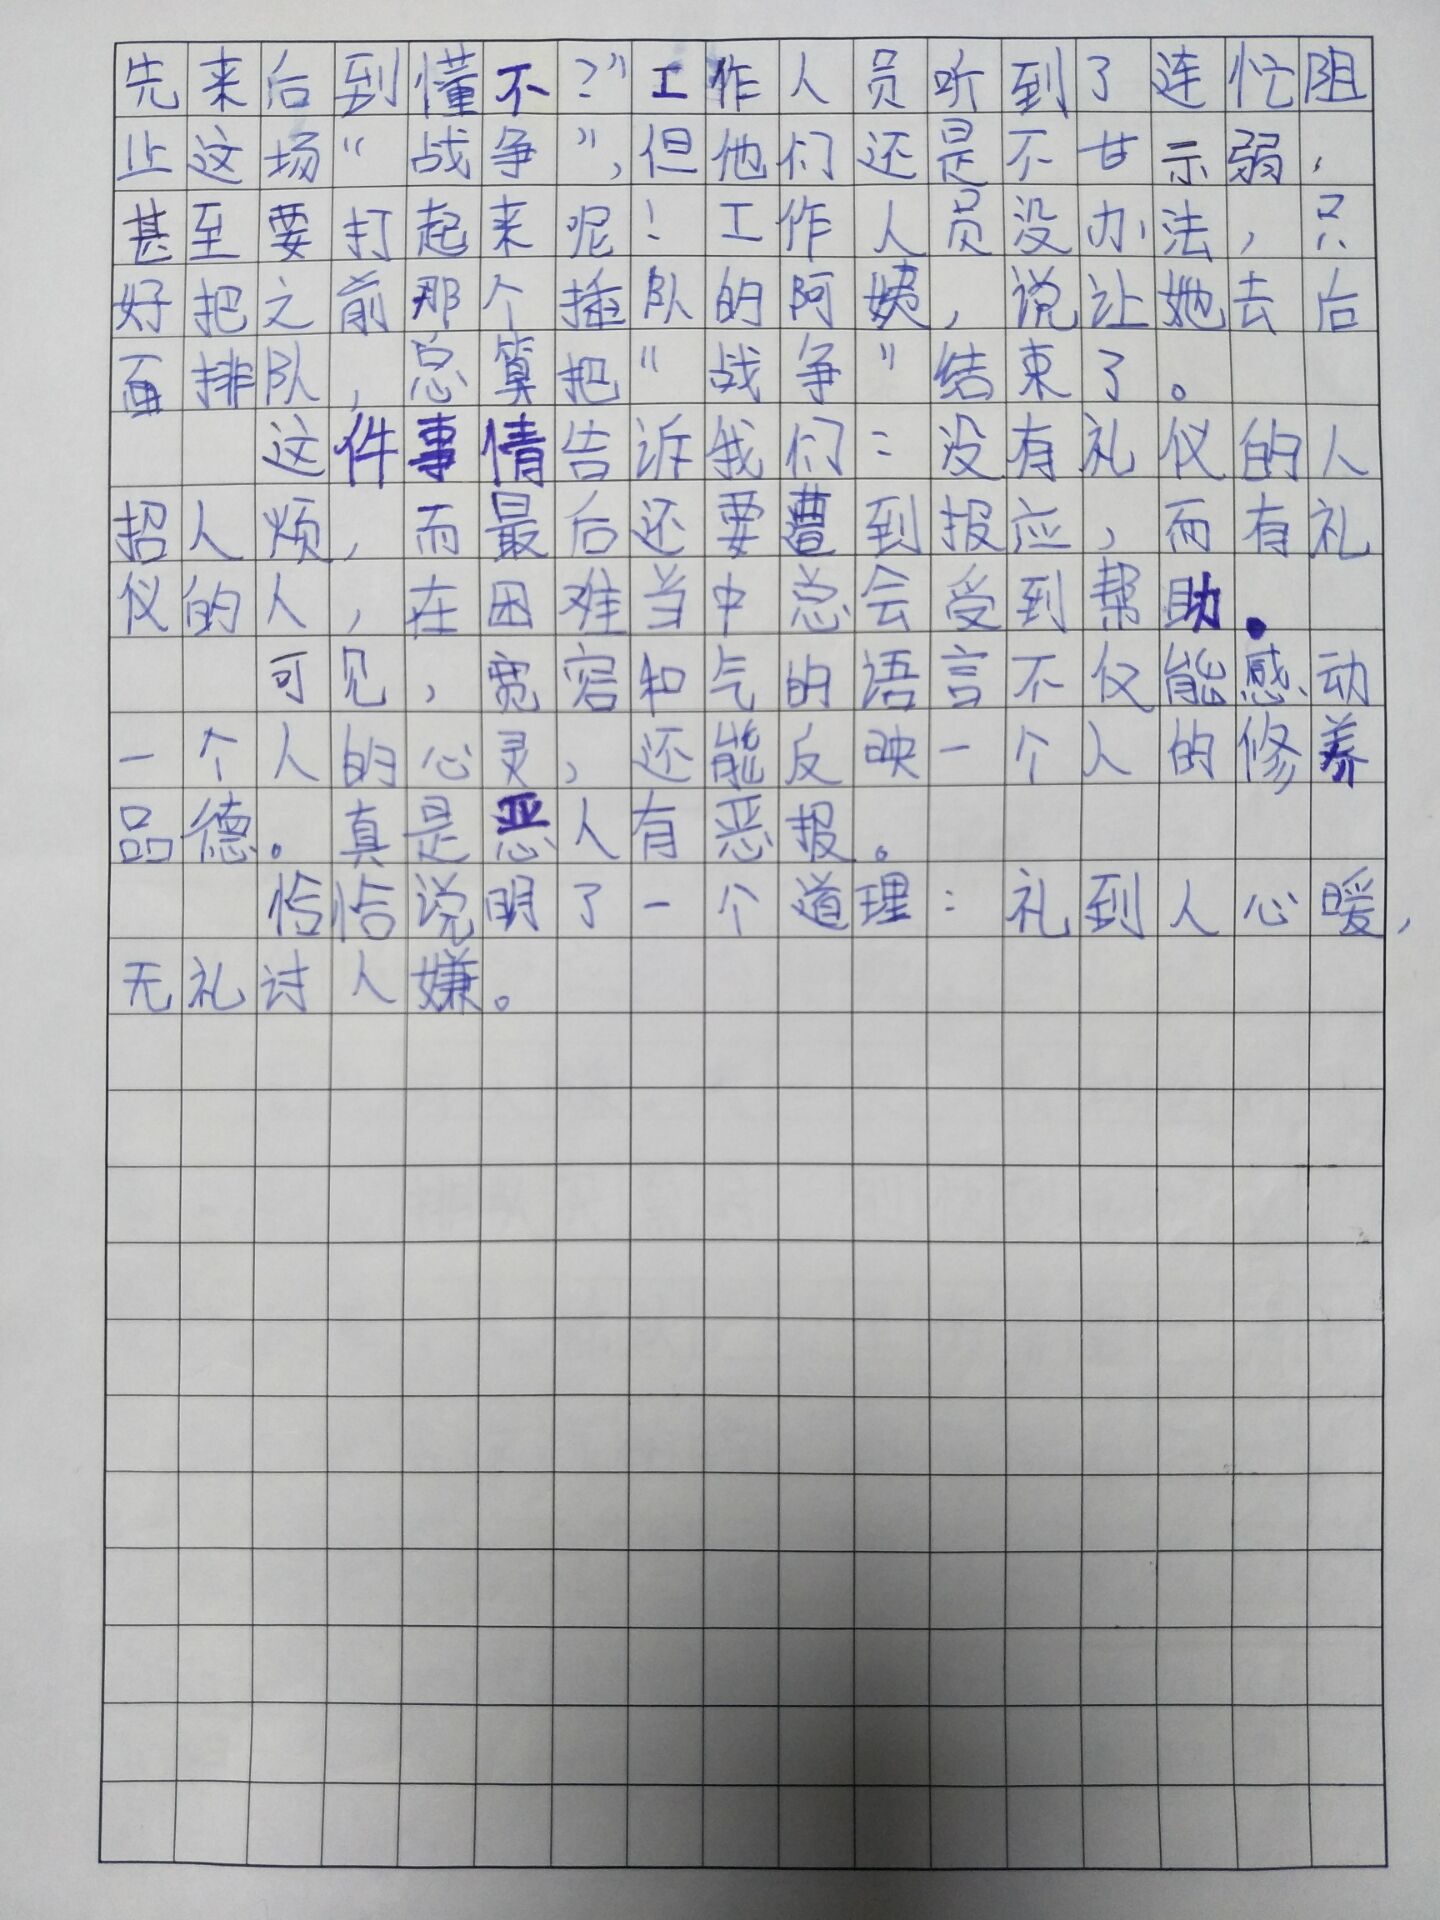 先来后到懂不？”工作人员听到了连忙阻
止这场“战争”，但他们还是不甘示弱，
甚至要打起来呢！工作人员没办法，只
好把之前那个插队的阿姨，说让她去后
面排队，总算把“战争”结束了。
这件事情告诉我们：没有礼仪的人
招人烦，而最后还要遭到报应，而有礼
仪的人，在困难当中总会受到帮助。
可见，宽容和气的语言不仅能感动
一个人的心灵，还能反映一个人的修养
品德。真是恶人有恶报。
恰恰说明了一个道理：礼到人心暖，
无礼讨人嫌。